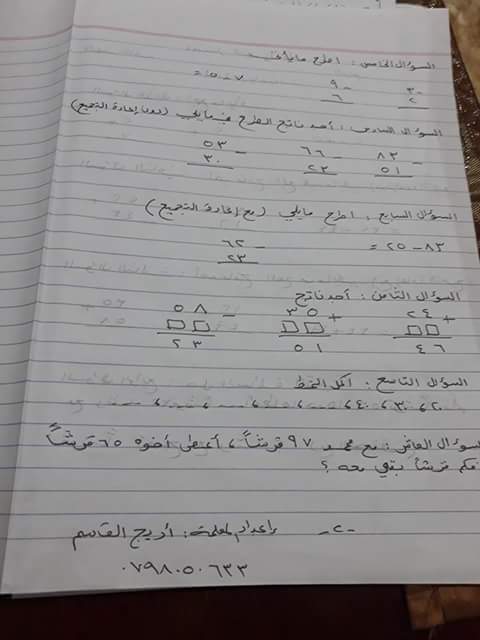 السؤال الخامس : اطرح مايلي
٣ - ٢    ٩ - ٦    ٧ - ٥ =
السؤال السادس : أجد ناتج الطرح فيمايلي (دون إعادة التجميع)
٨٣ - ٥١    ٦٦ - ٢٣    ٥٣ - ٣٠
السؤال السابع : اطرح مايلي (مع إعادة التجميع)
٨٣ - ٢٥ =    ٦٢ - ٢٣
السؤال الثامن : أجد ناتج
٢٤ + □□ ٤٦    ٣٥ + □□ ٥١    ٥٨ - □□ ٢٣
السؤال التاسع : أكمل النمط
٢٠ ، ٣٠ ، ٤٠ ، ... ، ... ، ... ، ...
السؤال العاشر : مع محمد ٩٧ قرشاً ، أعطى أخوه ٦٥ قرشاً
فكم قرشاً بقي معه ؟
- ٢ -    إعداد المعلمة : أريج القاسم
٠٧٩٨٠٥٠٦٣٣